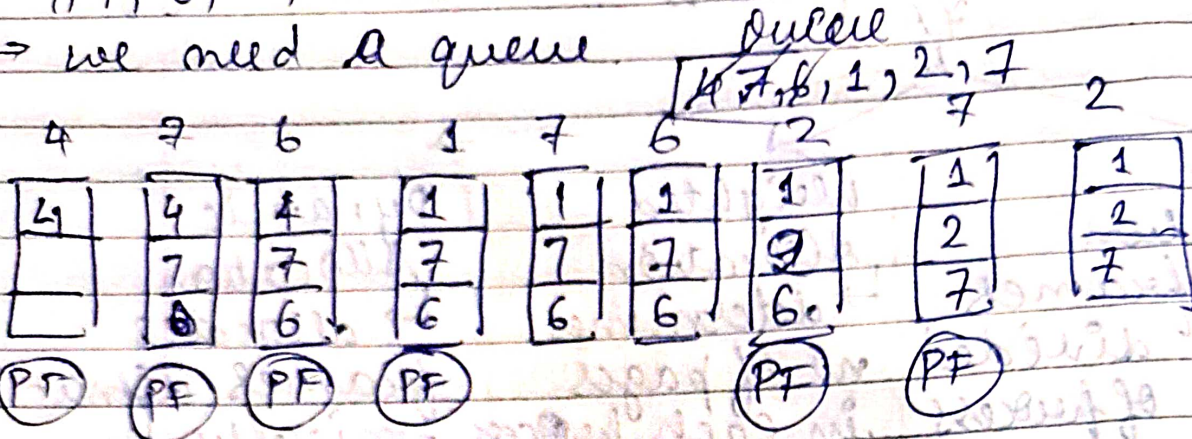 ⇒ we need a queue. Queue
4, 7, 6, 1, 2, 7
4 7 6 1 7 6 2 7 2
4 4 4 1 1 1 1 1 1
7 7 7 7 7 2 2 2
6 6 6 6 6 6 7 7
PF PF PF PF PF PF